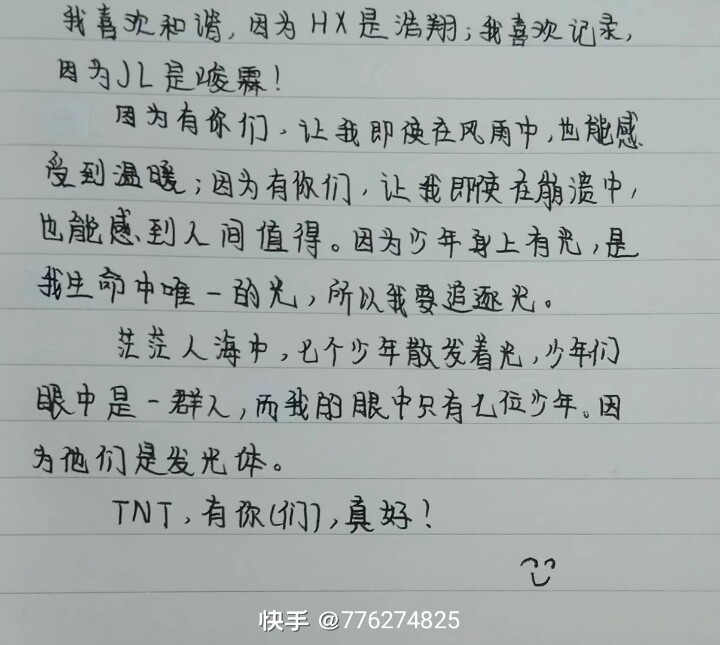 我喜欢和谐,因为HX是浩翔;我喜欢记录,
因为JL是峻霖!
因为有你们,让我即使在风雨中,也能感
受到温暖;因为有你们,让我即使在崩溃中,
也能感到人间值得。因为少年身上有光,是
我生命中唯一的光,所以我要追逐光。
茫茫人海中,七个少年散发着光,少年们
眼中是一群人,而我的眼中只有七位少年。因
为他们是发光体。
TNT,有你(们),真好!
快手 @776274825